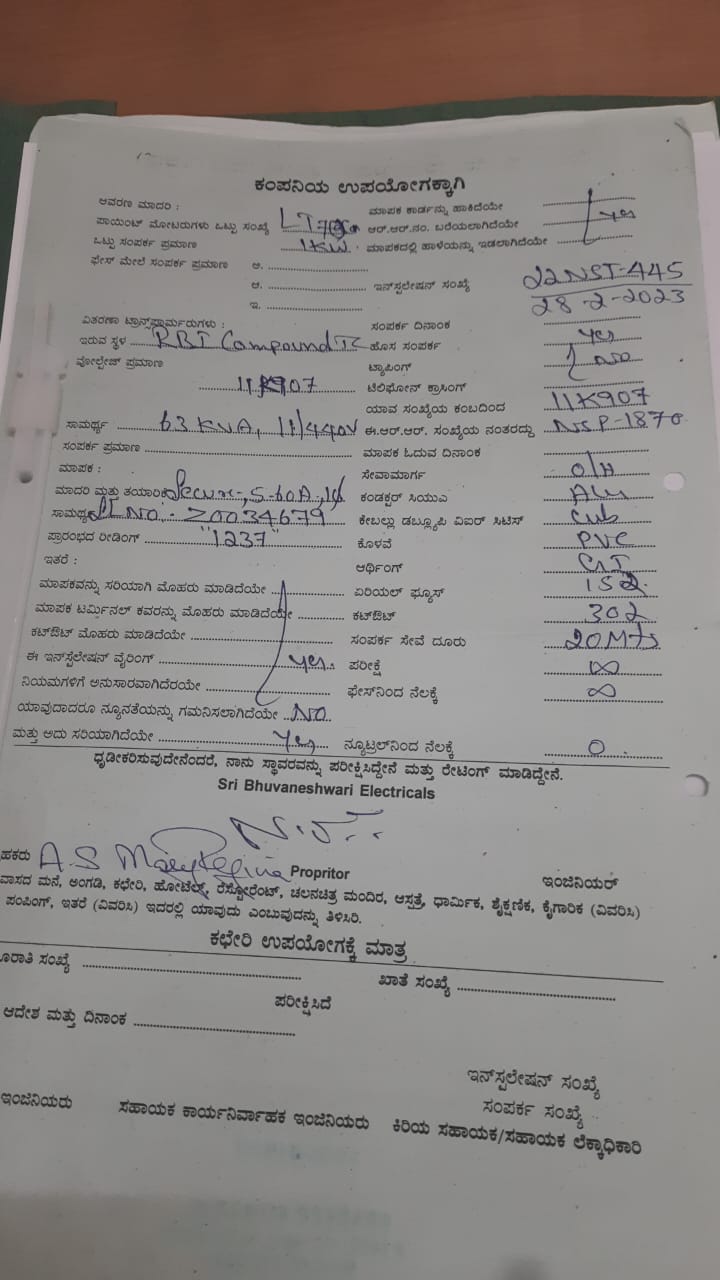 ಕಂಪನಿಯ ಉಪಯೋಗಕ್ಕಾಗಿ
ಆವರಣ ಮಾದರಿ : ಮಾಪಕ ಕಾರ್ಡನ್ನು ಹಾಕಿದೆಯೇ
ಪಾಯಿಂಟ್ ಮೋಟರುಗಳು ಒಟ್ಟು ಸಂಖ್ಯೆ LT ಆರ್.ಆರ್.ನಂ. ಬರೆಯಲಾಗಿದೆಯೇ yes
ಒಟ್ಟು ಸಂಪರ್ಕ ಪ್ರಮಾಣ 1KW ಮಾಪಕದಲ್ಲಿ ಹಾಳೆಯನ್ನು ಇಡಲಾಗಿದೆಯೇ
ಫೇಸ್ ಮೇಲೆ ಸಂಪರ್ಕ ಪ್ರಮಾಣ ಅ.
ಆ. ಇನ್‌ಸ್ಟಲೇಷನ್ ಸಂಖ್ಯೆ 22NST-445
ಇ. 28-2-2023
ವಿತರಣಾ ಟ್ರಾನ್ಸ್‌ಫಾರ್ಮರುಗಳು : ಸಂಪರ್ಕ ದಿನಾಂಕ
ಇರುವ ಸ್ಥಳ RBI Compound TC ಹೊಸ ಸಂಪರ್ಕ yes
ವೋಲ್ಟೇಜ್ ಪ್ರಮಾಣ ಟ್ಯಾಪಿಂಗ್ no
11K907 ಟೆಲಿಫೋನ್ ಕ್ರಾಸಿಂಗ್
ಯಾವ ಸಂಖ್ಯೆಯ ಕಂಬದಿಂದ 11K907
ಸಾಮರ್ಥ್ಯ 63 KVA, 11/440V ಈ.ಆರ್.ಆರ್. ಸಂಖ್ಯೆಯ ನಂತರದ್ದು NSP-1870
ಸಂಪರ್ಕ ಪ್ರಮಾಣ ಮಾಪಕ ಓದುವ ದಿನಾಂಕ
ಮಾಪಕ : ಸೇವಾಮಾರ್ಗ O/H
ಮಾದರಿ ಮತ್ತು ತಯಾರಿಕೆ Secure, 5-60A, ಕಂಡಕ್ಟರ್ ಸಿಯುಎ Alu
ಸಾಮರ್ಥ್ಯ Sl No:- Z0034679 ಕೇಬಲ್ಲು ಡಬ್ಲ್ಯೂಪಿ ವಿಐರ್ ಸಿಟಿಸ್ Cub
ಪ್ರಾರಂಭದ ರೀಡಿಂಗ್ "1237" ಕೊಳವೆ PVC
ಇತರೆ : ಆರ್ಥಿಂಗ್
ಮಾಪಕವನ್ನು ಸರಿಯಾಗಿ ಮೊಹರು ಮಾಡಿದೆಯೇ ಏರಿಯಲ್ ಫ್ಯೂಸ್
ಮಾಪಕ ಟರ್ಮಿನಲ್ ಕವರನ್ನು ಮೊಹರು ಮಾಡಿದೆಯೇ ಕಟ್‌ಔಟ್
ಕಟ್‌ಔಟ್ ಮೊಹರು ಮಾಡಿದೆಯೇ ಸಂಪರ್ಕ ಸೇವೆ ದೂರು 20Mts
ಈ ಇನ್‌ಸ್ಟಲೇಷನ್ ವೈರಿಂಗ್ yes. ಪರೀಕ್ಷೆ ∞
ನಿಯಮಗಳಿಗೆ ಅನುಸಾರವಾಗಿದೆರಯೇ ಫೇಸ್‌ನಿಂದ ನೆಲಕ್ಕೆ ∞
ಯಾವುದಾದರೂ ನ್ಯೂನತೆಯನ್ನು ಗಮನಿಸಲಾಗಿದೆಯೇ No
ಮತ್ತು ಅದು ಸರಿಯಾಗಿದೆಯೇ yes ನ್ಯೂಟ್ರಲ್‌ನಿಂದ ನೆಲಕ್ಕೆ 0
ಧೃಡೀಕರಿಸುವುದೇನೆಂದರೆ, ನಾನು ಸ್ಥಾವರವನ್ನು ಪರೀಕ್ಷಿಸಿದ್ದೇನೆ ಮತ್ತು ರೇಟಿಂಗ್ ಮಾಡಿದ್ದೇನೆ.
Sri Bhuvaneshwari Electricals
ಹಕರು A.S Mary Regina Propritor ಇಂಜಿನಿಯರ್
ವಾಸದ ಮನೆ, ಅಂಗಡಿ, ಕಛೇರಿ, ಹೋಟೆಲ್ಸ್, ರೆಸ್ಟೋರೆಂಟ್, ಚಲನಚಿತ್ರ ಮಂದಿರ, ಆಸ್ಪತ್ರೆ, ಧಾರ್ಮಿಕ, ಶೈಕ್ಷಣಿಕ, ಕೈಗಾರಿಕ (ವಿವರಿಸಿ)
ಪಂಪಿಂಗ್, ಇತರೆ (ವಿವರಿಸಿ) ಇದರಲ್ಲಿ ಯಾವುದು ಎಂಬುವುದನ್ನು ತಿಳಿಸಿರಿ.
ಕಛೇರಿ ಉಪಯೋಗಕ್ಕೆ ಮಾತ್ರ
ೂರಾತಿ ಸಂಖ್ಯೆ ಖಾತೆ ಸಂಖ್ಯೆ
ಪರೀಕ್ಷಿಸಿದೆ
ಆದೇಶ ಮತ್ತು ದಿನಾಂಕ
ಇನ್‌ಸ್ಪಲೇಷನ್ ಸಂಖ್ಯೆ
ಸಂಪರ್ಕ ಸಂಖ್ಯೆ
ಇಂಜಿನಿಯರು ಸಹಾಯಕ ಕಾರ್ಯನಿರ್ವಾಹಕ ಇಂಜಿನಿಯರು ಕಿರಿಯ ಸಹಾಯಕ/ಸಹಾಯಕ ಲೆಕ್ಕಾಧಿಕಾರಿ